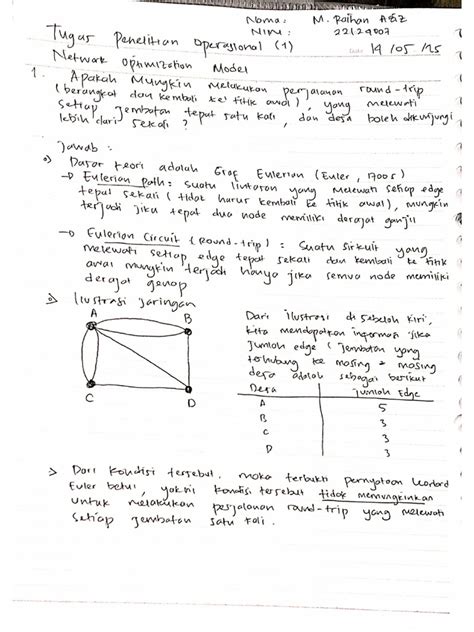 Nama : M. Raihan Aziz
NIM : 22129007
Tugas Penelitian Operasional (1)
19 / 05 / 25
Network Optimization Model
1. Apakah Mungkin Melakukan perjalanan round-trip
(berangkat dan kembali ke titik awal), yang melewati
setiap jembatan tepat satu kali, dan desa boleh dikunjungi
lebih dari sekali ?
Jawab :
Dasar teori adalah Graf Eulerian (Euler, 1700s)
→ Eulerian Path : suatu lintasan yang Melewati setiap edge
tepat sekali (tidak harus kembali ke titik awal), mungkin
terjadi jika tepat dua node memiliki derajat ganjil
→ Eulerian Circuit (Round-trip) : Suatu sirkuit yang
melewati setiap edge tepat sekali dan kembali ke titik
awal mungkin terjadi hanya jika semua node memiliki
derajat genap
Ilustrasi jaringan
A
B
C
D
Dari ilustrasi di sebelah kiri,
kita mendapatkan informasi jika
jumlah edge (jembatan yang
terhubung ke masing - masing
desa adalah sebagai berikut
Desa Jumlah Edge
A 5
B 3
C 3
D 3
> Dari kondisi tersebut, maka terbukti pernyataan Leonhard
Euler betul, yakni kondisi tersebut tidak memungkinkan
untuk melakukan perjalanan round-trip yang melewati
setiap jembatan satu kali.